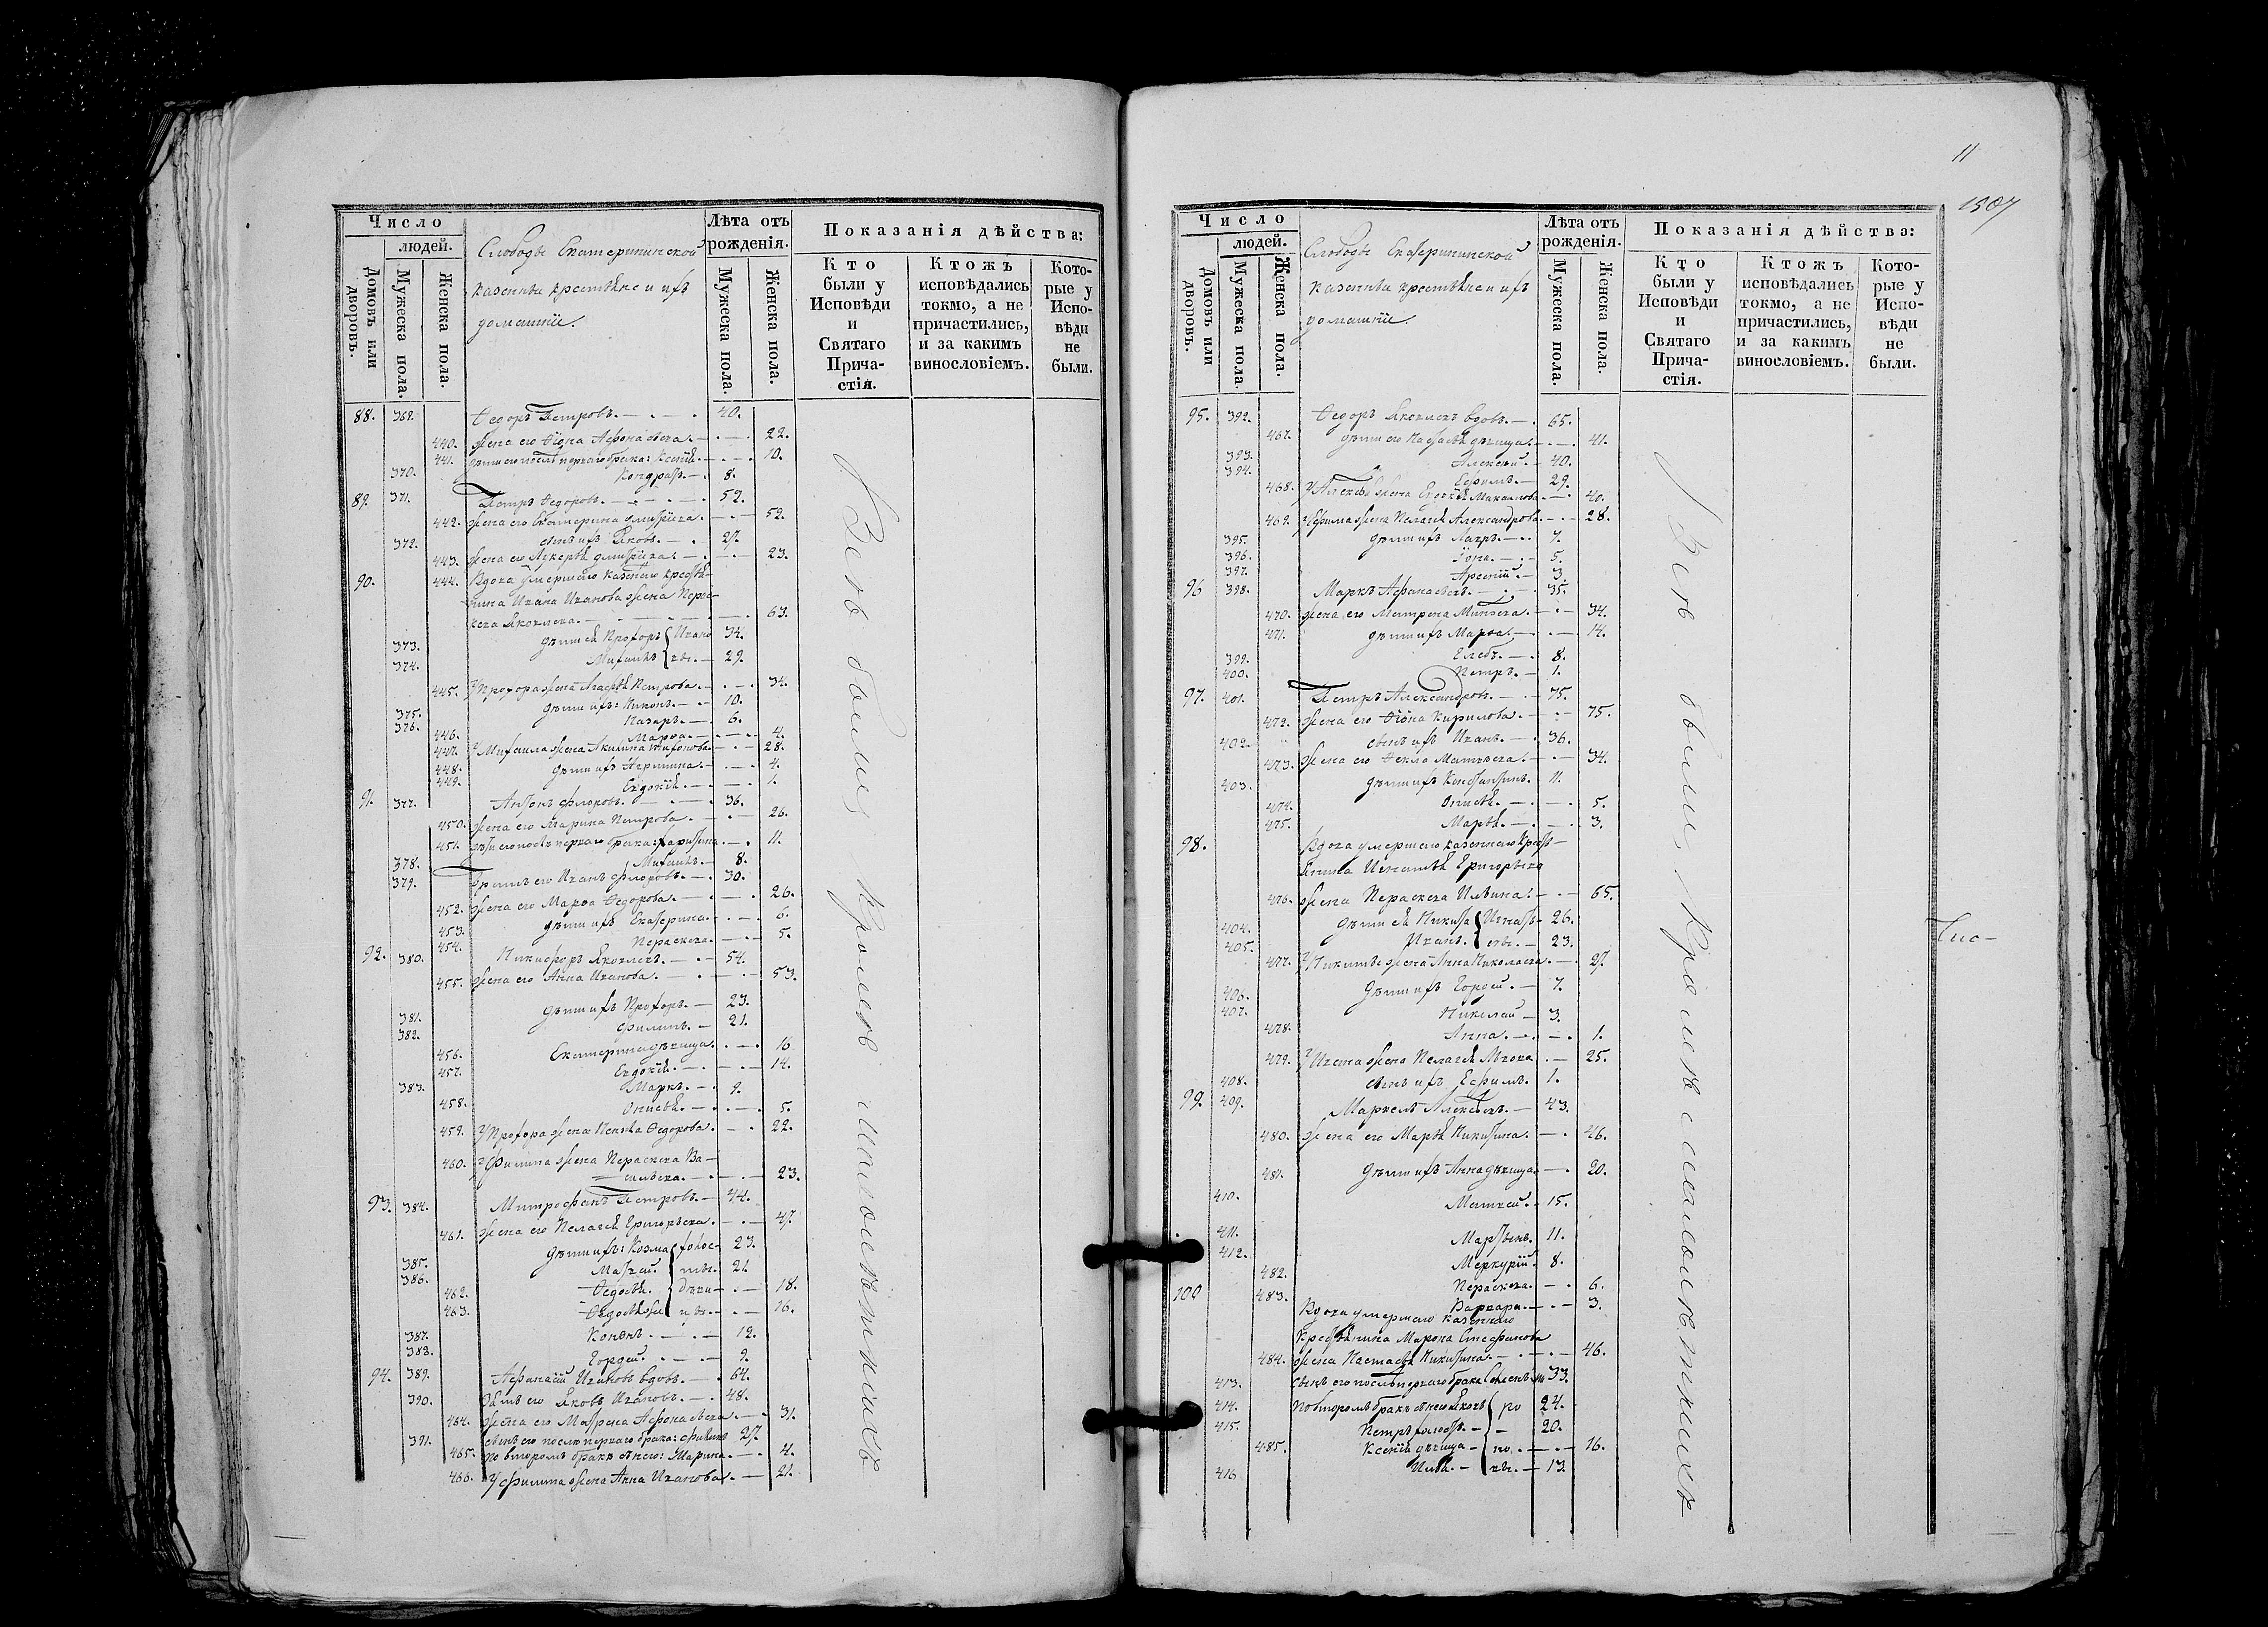 Число
людей.
Домовъ или дворовъ.
Мужеска пола.
Женска пола.
Слободы Екатерининской
казенныи крестьяне и ихъ
домашніе.
Лѣта отъ рожденія.
Мужеска пола.
Женска пола.
Показанія дѣйства:
Кто были у Исповѣди и Святаго Прича-стія.
Ктожъ исповѣдались токмо, а не причастились, и за какимъ винословіемъ.
Кото-рые у Испо-вѣди не были.
88. 369. Ѳедоръ Петровъ. 40.
440. жена его Ѳіона Афонасьева. 22.
441. дѣти его послѣ перваго брака: Ксенія. 10.
370. Кондратъ. 8.
89. 371. Петръ Ѳедоровъ. 52.
442. жена его Екатерина Дмитріева. 52.
372. сынъ ихъ Яковъ. 27.
443. жена его Лукерья Дмитріева. 23.
90. 444. Вдова умершаго казеннаго кресть-
янина Ивана Иванова жена Парас-
кева Яковлева. 63.
373. дѣти ея Прохоръ Ивано 34.
374. Михаилъ вы. 29.
445. У Прохора жена Агафья Петрова. 34.
375. дѣти ихъ: Никонъ. 10.
376. Назаръ. 6.
446. Марѳа. 4.
447. У Михаила жена Акилина 28.
448. дѣти ихъ Агрипина. 4.
449. Евдокія. 1.
91. 377. Антонъ Флоровъ. 36.
450. жена его Марина Петрова. 26.
451. дѣти его послѣ перваго брака: Харитина. 11.
378. Михаилъ. 8.
379. Братъ его Иванъ Флоровъ. 30.
452. жена его Марѳа Ѳедорова. 26.
453. дѣти ихъ Екатерина. 6.
454. Параскева. 5.
92. 380. Никифоръ Яковлевъ. 54.
455. жена его Анна Иванова. 53.
381. дѣти ихъ Прохоръ. 23.
382. Филипъ. 21.
456. Екатерина дѣвица. 16
457. Евдокія. 14.
383. Маркъ. 9.
458. Онисья. 5.
459. У Прохора жена Ксенія Ѳедорова. 22.
460. У Филипа жена Параскева Ва-
сильева. 23.
93. 384. Митрофанъ Петровъ. 44.
461. жена его Пелагея Григорьева. 47.
385. дѣти ихъ: Козма холос- 23.
386. Матвей. ты. 21.
462. Ѳедосья. дѣви- 18.
463. цы. 16.
387. Кононъ. 12.
388. Гордей. 9.
94. 389. Афанасій Ивановъ вдовъ. 64.
390. Зять его Яковъ Ивановъ. 48.
464. жена его Матрена Афонасьева. 31.
391. сынъ его послѣ перваго брака: Филипъ 27.
465. По второмъ бракѣ съ нею: Марина. 4.
466. У Филипа жена Анна Иванова. 21.
Всѣ были, кромѣ малолѣтнихъ
11
1507
Число
людей.
Домовъ или дворовъ.
Мужеска пола.
Женска пола.
Слободы Екатерининской
казенныи крестьяне и ихъ
домашніе.
Лѣта отъ рожденія.
Мужеска пола.
Женска пола.
Показанія дѣйства:
Кто были у Исповѣди и Святаго Прича-стія.
Ктожъ исповѣдались токмо, а не причастились, и за какимъ винословіемъ.
Кото-рые у Испо-вѣди не были.
95. 392. Ѳедоръ Яковлевъ вдовъ. 65.
467. дѣти его Настасья дѣвица. 41.
393. Алексей. 40.
394. Ефимъ. 29.
468. У Алексѣя жена Евдокія Максимова. 40.
469. У Ефима жена Пелагея Александрова. 28.
395. дѣти ихъ Лавръ. 7.
396. Іона. 5.
397. Арсеній. 3.
96 398. Маркъ Афанасьевъ. 35.
470. жена его Матрена 34.
471. дѣти ихъ Марѳа. 14.
399. Глебъ. 8.
400. Петръ. 1.
97. 401. Петръ Александровъ. 75.
472. жена его Ѳіона Кирилова. 75.
402. сынъ ихъ Иванъ. 36.
473. жена его Ѳекла Матвѣева. 34.
403. дѣти ихъ Константинъ. 11.
474. Онисья. 5.
475. Марья. 3.
98. Вдова умершаго казеннаго крестья-
нина Игнатія Григорьева
476. жена Параскева Ильина. 65.
404. дѣти ея Никита Игнать- 26.
405. Иванъ. евы. 23.
477. У Никиты жена Анна Николаева. 27
406. дѣти ихъ Гордей. 7.
407. Николай 3.
478. Анна. 1.
479. У Ивана жена Пелагея Львова 25.
408. сынъ ихъ Ефимъ. 1.
99. 409. Маркелъ Алексѣевъ. 43.
480. жена его Марья Никитина. 46.
481. дѣти ихъ Анна дѣвица 20.
410. Матвей. 15.
411. Мартынъ. 11.
412. Меркурій. 8.
482. Параскева. 6.
483. Варвара. 3.
100 Вдова умершаго казеннаго
крестьянина Мирона Стефанова
484. жена Настасья Никитина. 46.
413. сынъ его послѣ перваго брака 33.
414. по второмъ бракѣ съ нею Яковъ ро 24.
415. Петръ холостъ. 20.
485. Ксенія дѣвица но. 16.
416 Илья. вы. 13
Всѣ были, кромѣ малолѣтнихъ
Чис-